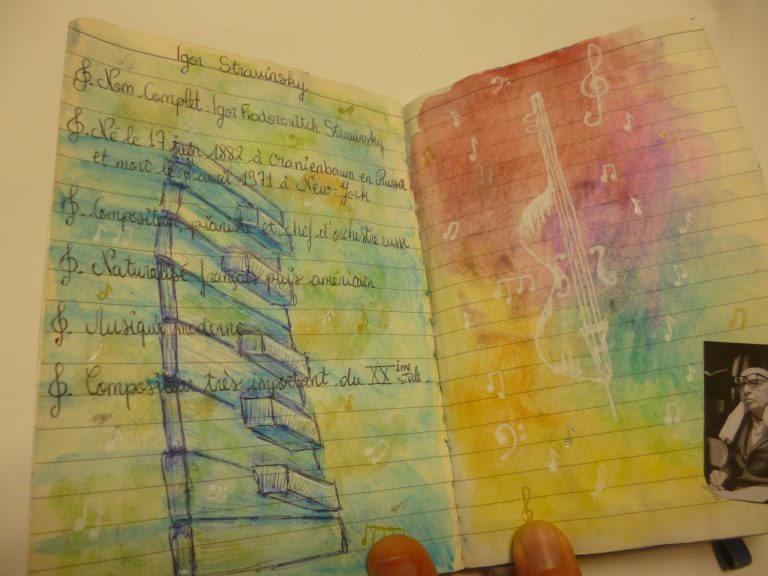 Igor Stravinsky
Nom Complet : Igor Fiodorovitch Stravinsky
Né le 17 juin 1882 à Oranienbaum en Russie
et mort le 6 avril 1971 à New-York
Compositeur, pianiste et chef d'orchestre russe
Naturalisé français puis américain
Musique moderne
Compositeur très important du XXième siècle.